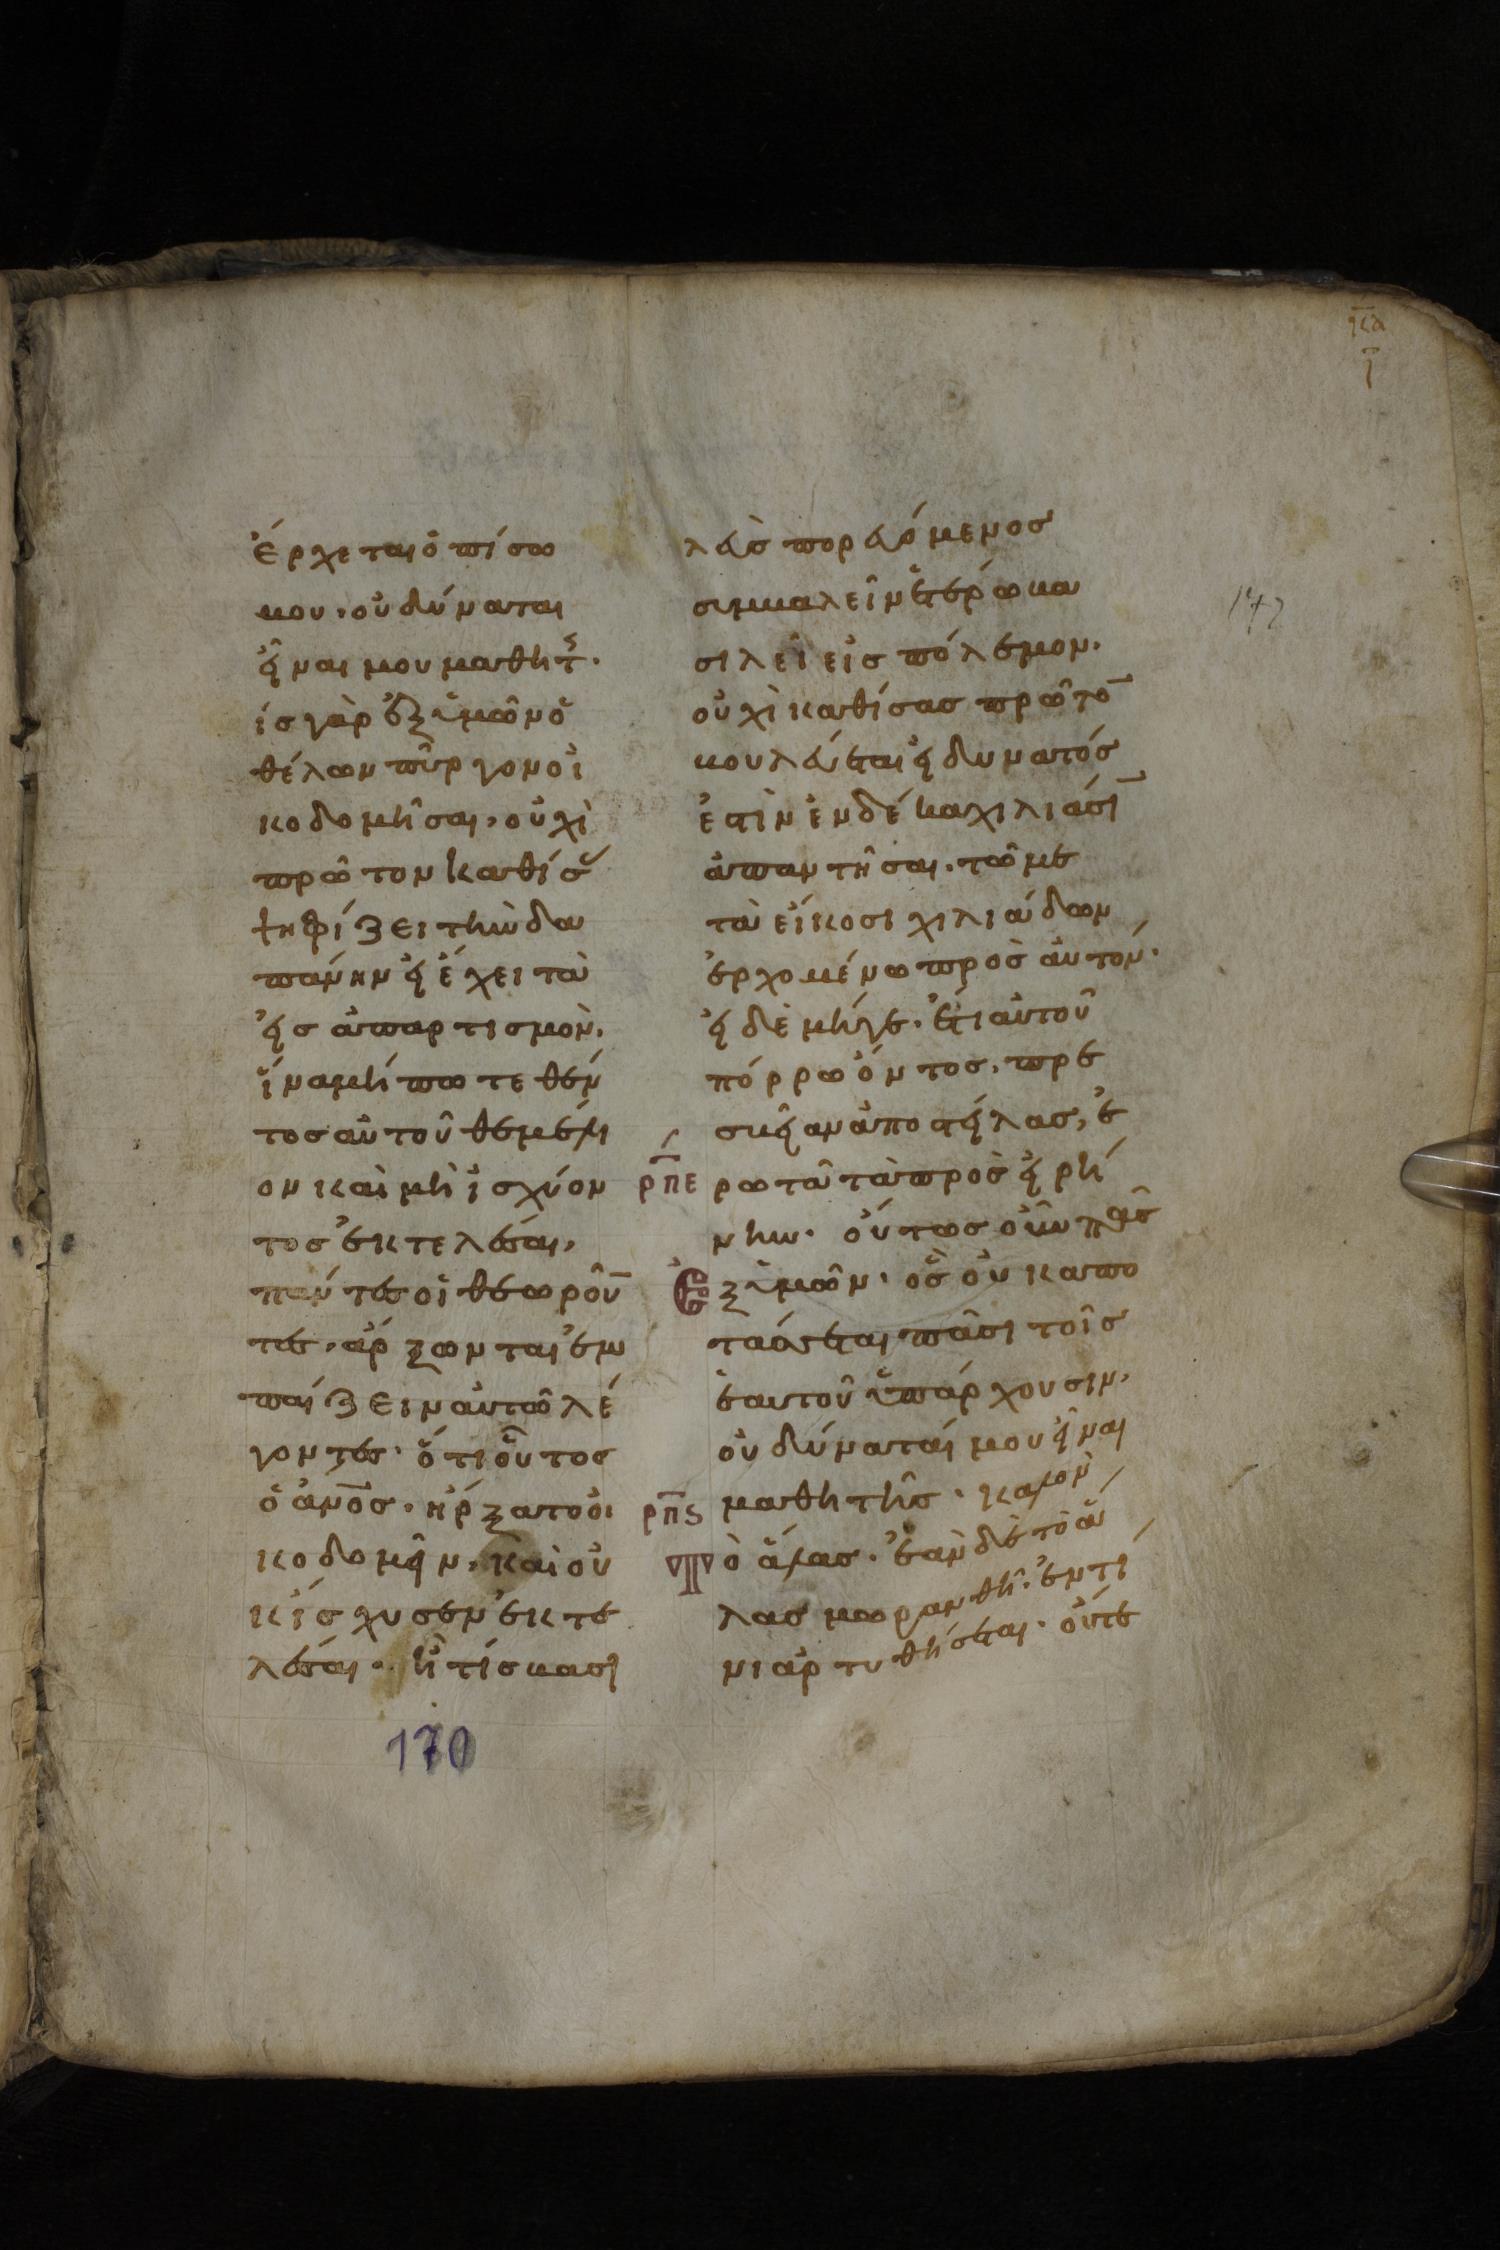 κα
ι
ἔρχεται ὀπίσω
μου· οὐ δύναται
εἶναί μου μαθητ(ή)ς·
τίς γὰρ ἐξ ὑμῶν ὁ
θέλων πύργον οἰ
κοδομῆσαι, οὐχὶ
πρῶτον καθίσ(ας)
ψηφίζει τὴν δα
πάνην εἰ ἔχει τὰ
εἰς ἀπαρτισμόν,
ἵνα μή πωτε θέν
τος αὐτοῦ θεμέλι
ον καὶ μὴ ἰσχύον
τος ἐκτελέσαι,
πάντες οἱ θεωροῦ̅
τες, ἄρξωνται ἐμ
παίζειν αὐτῶ λέ
γοντες· ὅτι οὗτος
ὁ ἀν̅ο̅ς̅· ἤρξατο οἰ
κοδομεῖν, καὶ οὐ
κ ἴσχυσεν ἐκτε
λέσαι· ἢ τίς βασι
170
λεὺς πορευόμενος
συμβαλεῖν ἑτέρω βα
σιλεῖ εἰς πόλεμον·
οὐχὶ καθίσας πρῶτο̅
βουλεύεται εἰ δυνατός
ἐστὶν ἐν δέκα χιλιάσι̅
ἀπαντῆσαι· τῶ με
τὰ εἴκοσι χιλιάδων
ἐρχομένω πρὸς αὐτόν·
εἰ δὲ μήγε· ἔτι αὐτοῦ
πόρρω ὄντος, πρε
σβείαν ἀποστείλας, ἐ
ρ̅π̅ε ρωτᾶ τὰ πρὸς εἰρή
νην· οὕτως οὖν πᾶς
ἐξ ὑμῶν· ὃς οὐκ ἀπο
τάσσεται πᾶσι τοῖς
ἑαυτοῦ ὑπάρχουσιν,
οὐ δύναταί μου εἶναι
ρ̅π̅ς μαθητής· καλὸν
τὸ ἅλας· ἐὰν δὲ τὸ ἅ
λας μωρανθῆ· ἐν τί
νι ἀρτυθήσεται· οὔτε
147